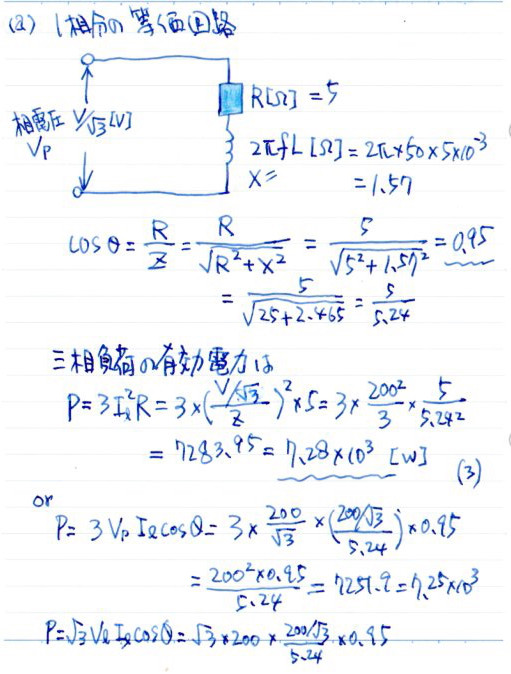 (a) 1相分の等価回路
相電圧 V/√3[V]
Vp
R[Ω] = 5
2πfL[Ω] = 2π×50×5×10⁻³
X = = 1.57
cosθ = R/Z = R/√(R²+X²) = 5/√(5²+1.57²) = 0.95
= 5/√(25+2.465) = 5/5.24
三相負荷の有効電力は
P = 3Iℓ²R = 3×((V/√3)/Z)²×5 = 3×200²/3×5/5.24²
= 7283.95 = 7.28×10³ [W] (3)
or
P = 3VpIℓcosθ = 3×200/√3×((200/√3)/5.24)×0.95
= 200²×0.95/5.24 = 7251.9 = 7.25×10³
P = √3VℓIℓcosθ = √3×200×(200/√3)/5.24×0.95